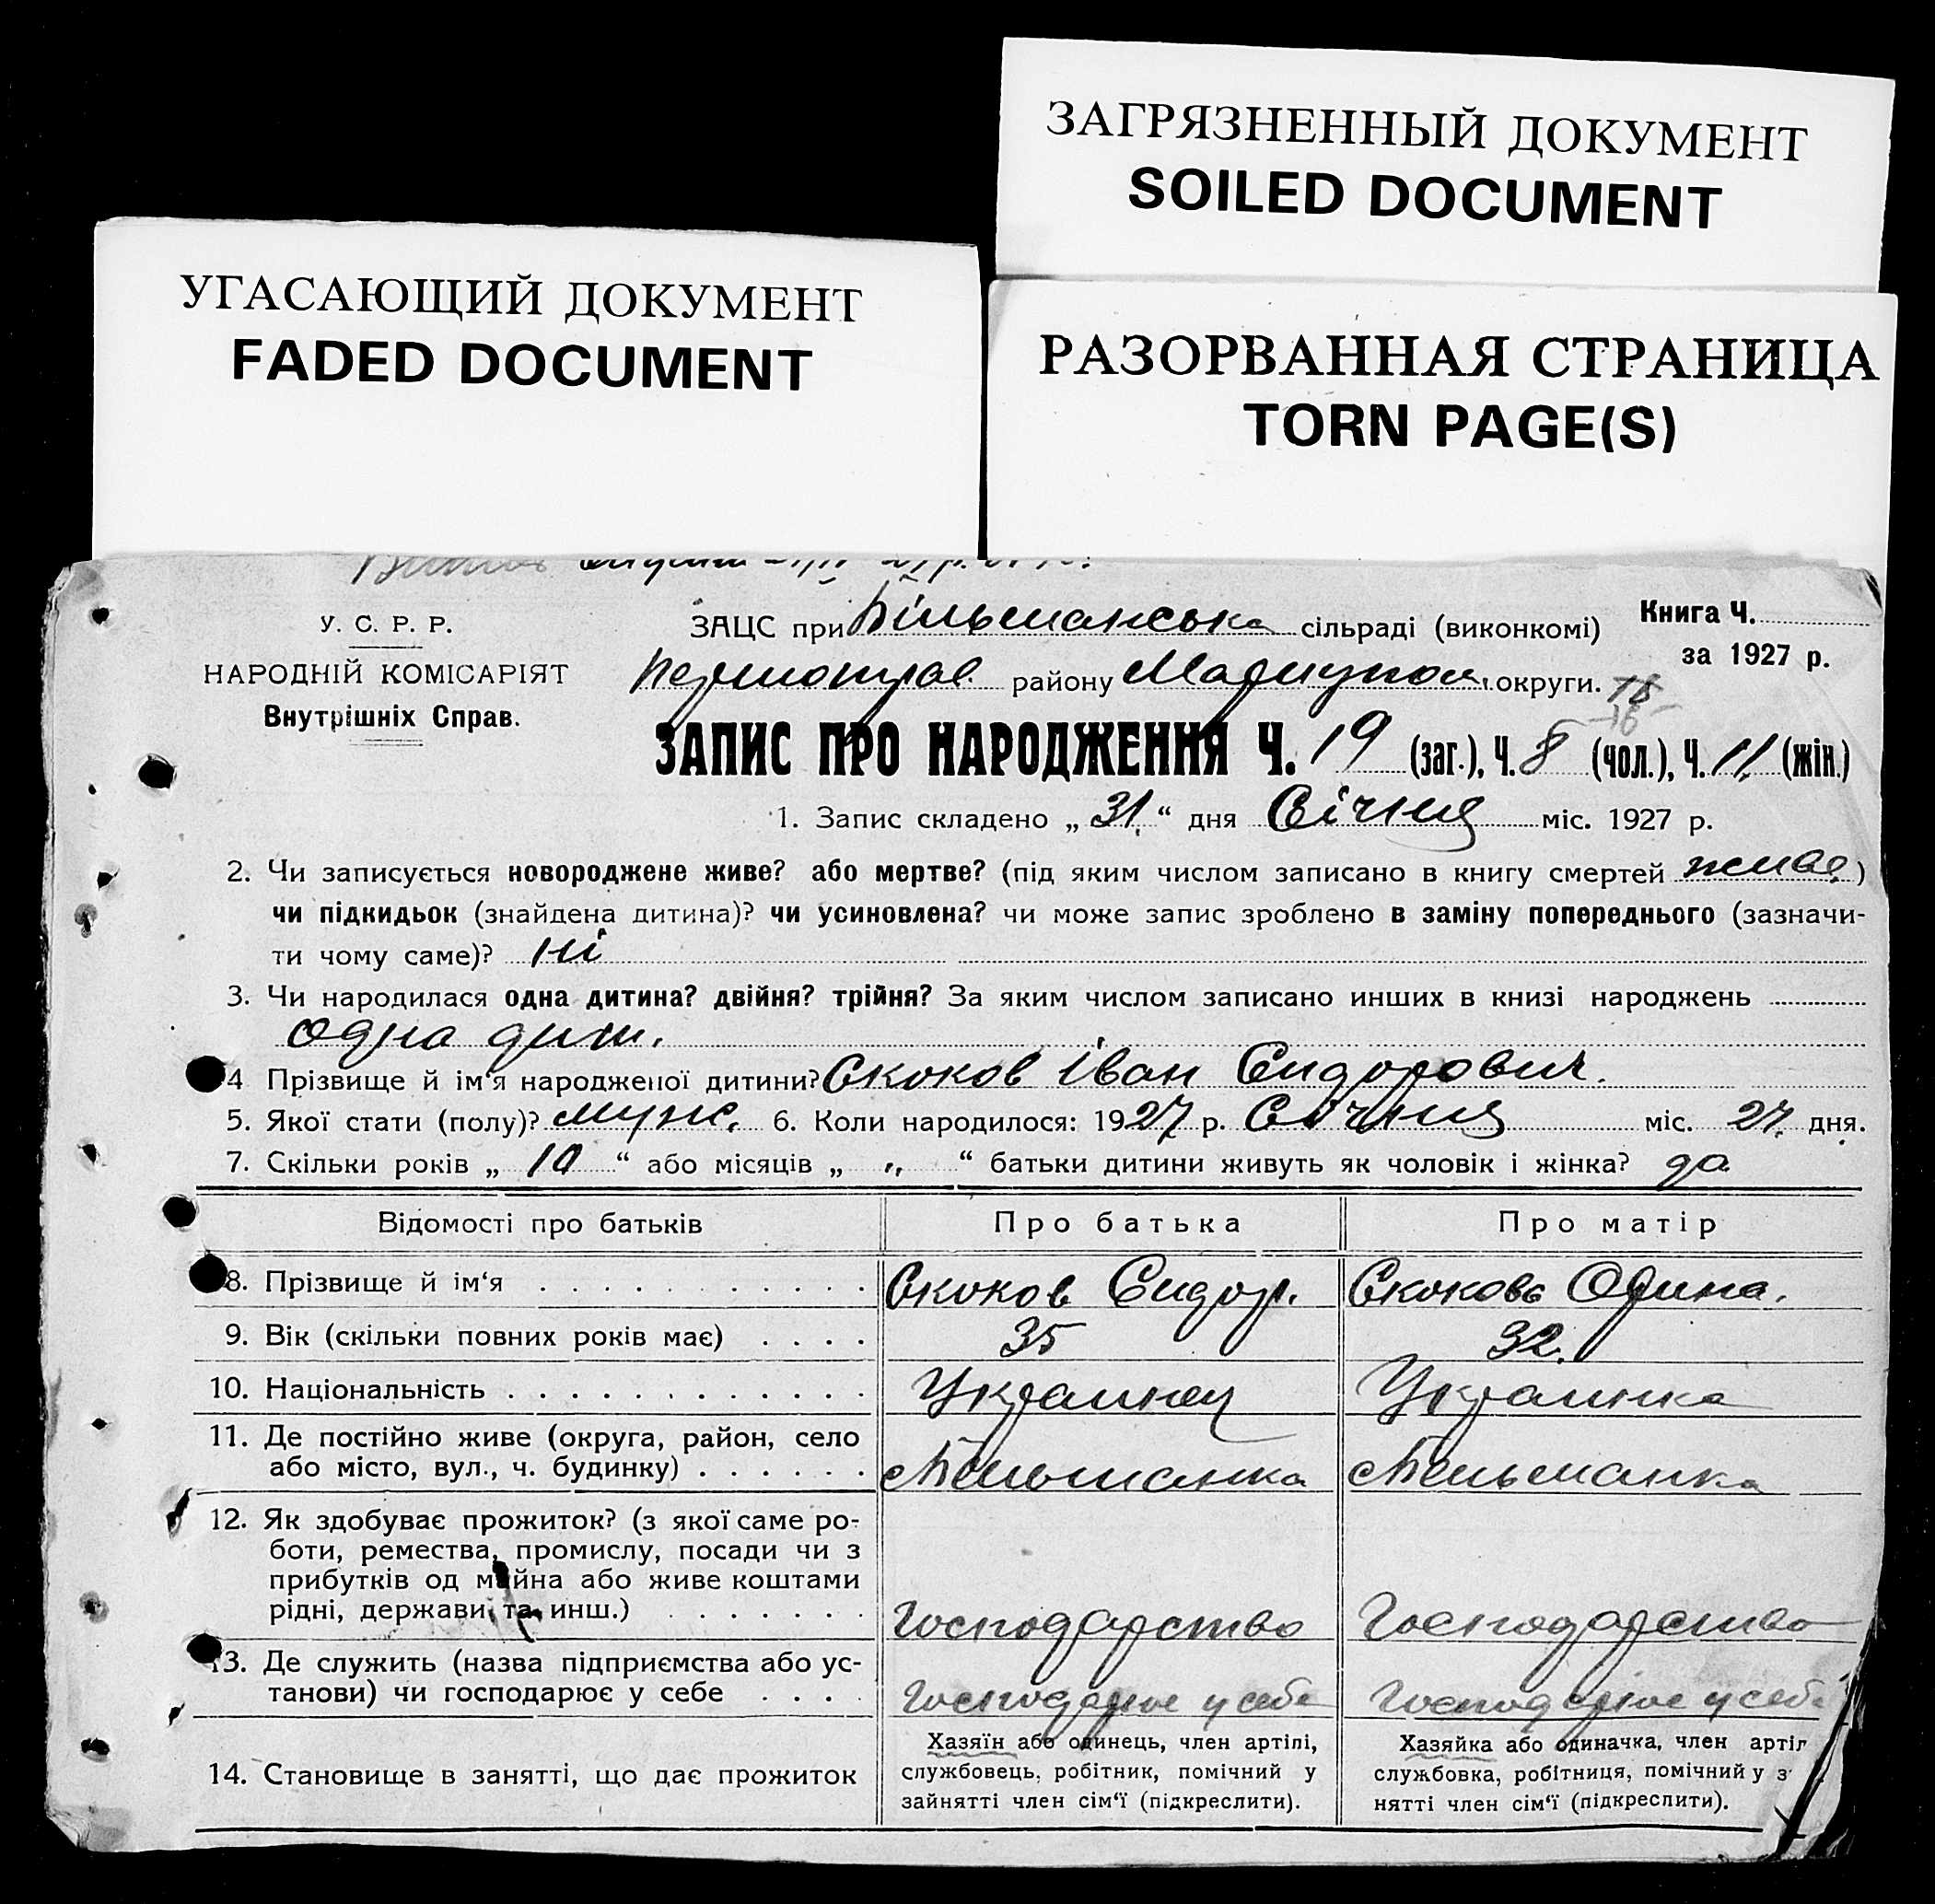 ЗАГРЯЗНЕННЫЙ ДОКУМЕНТ
SOILED DOCUMENT
УГАСАЮЩИЙ ДОКУМЕНТ
FADED DOCUMENT
РАЗОРВАННАЯ СТРАНИЦА
TORN PAGE(S)
У. С. Р. Р.
НАРОДНІЙ КОМІСАРІЯТ
Внутрішніх Справ.
ЗАЦС при Більманська сільраді (виконкомі)
Книга Ч.
за 1927 р.
району Маріупол. округи.
ЗАПИС ПРО НАРОДЖЕННЯ Ч. 19 (заг.), Ч. 8 (чол.), Ч. 11 (жін.)
1. Запис складено „ 31 “ дня Січня міс. 1927 р.
2. Чи записується новороджене живе? або мертве? (під яким числом записано в книгу смертей живе)
чи підкидьок (знайдена дитина)? чи усиновлена? чи може запис зроблено в заміну попереднього (зазначи-
ти чому саме)? ні
3. Чи народилася одна дитина? двійня? трійня? За яким числом записано инших в книзі народжень
одна дит.
4 Прізвище й ім‘я народженої дитини? Скоков Іван Сидорович.
5. Якої стати (полу)? муж. 6. Коли народилося: 1927 р. Січня міс. 27. дня.
7. Скільки років „ 10 “ або місяців „ „ “ батьки дитини живуть як чоловік і жінка? да
Відомості про батьків Про батька Про матір
8. Прізвище й ім‘я Скоков Сидор. Скокова
9. Вік (скільки повних років має) 35 32.
10. Національність Украинец Украинка
11. Де постійно живе (округа, район, село
або місто, вул., ч. будинку) Бельманка Бельманка
12. Як здобуває прожиток? (з якої саме ро-
боти, ремества, промислу, посади чи з
прибутків од майна або живе коштами
рідні, держави, та инш.) Господарство Господарство
13. Де служить (назва підприємства або ус-
танови) чи господарює у себе Господарює у себе Господарює у себе
14. Становище в занятті, що дає прожиток
Хазяїн або одинець, член артілі,
службовець, робітник, помічний у
зайнятті член сім‘ї (підкреслити).
Хазяйка або одиначка, член артіл
службовка, робітниця, помічний у з
нятті член сім‘ї (підкреслити).